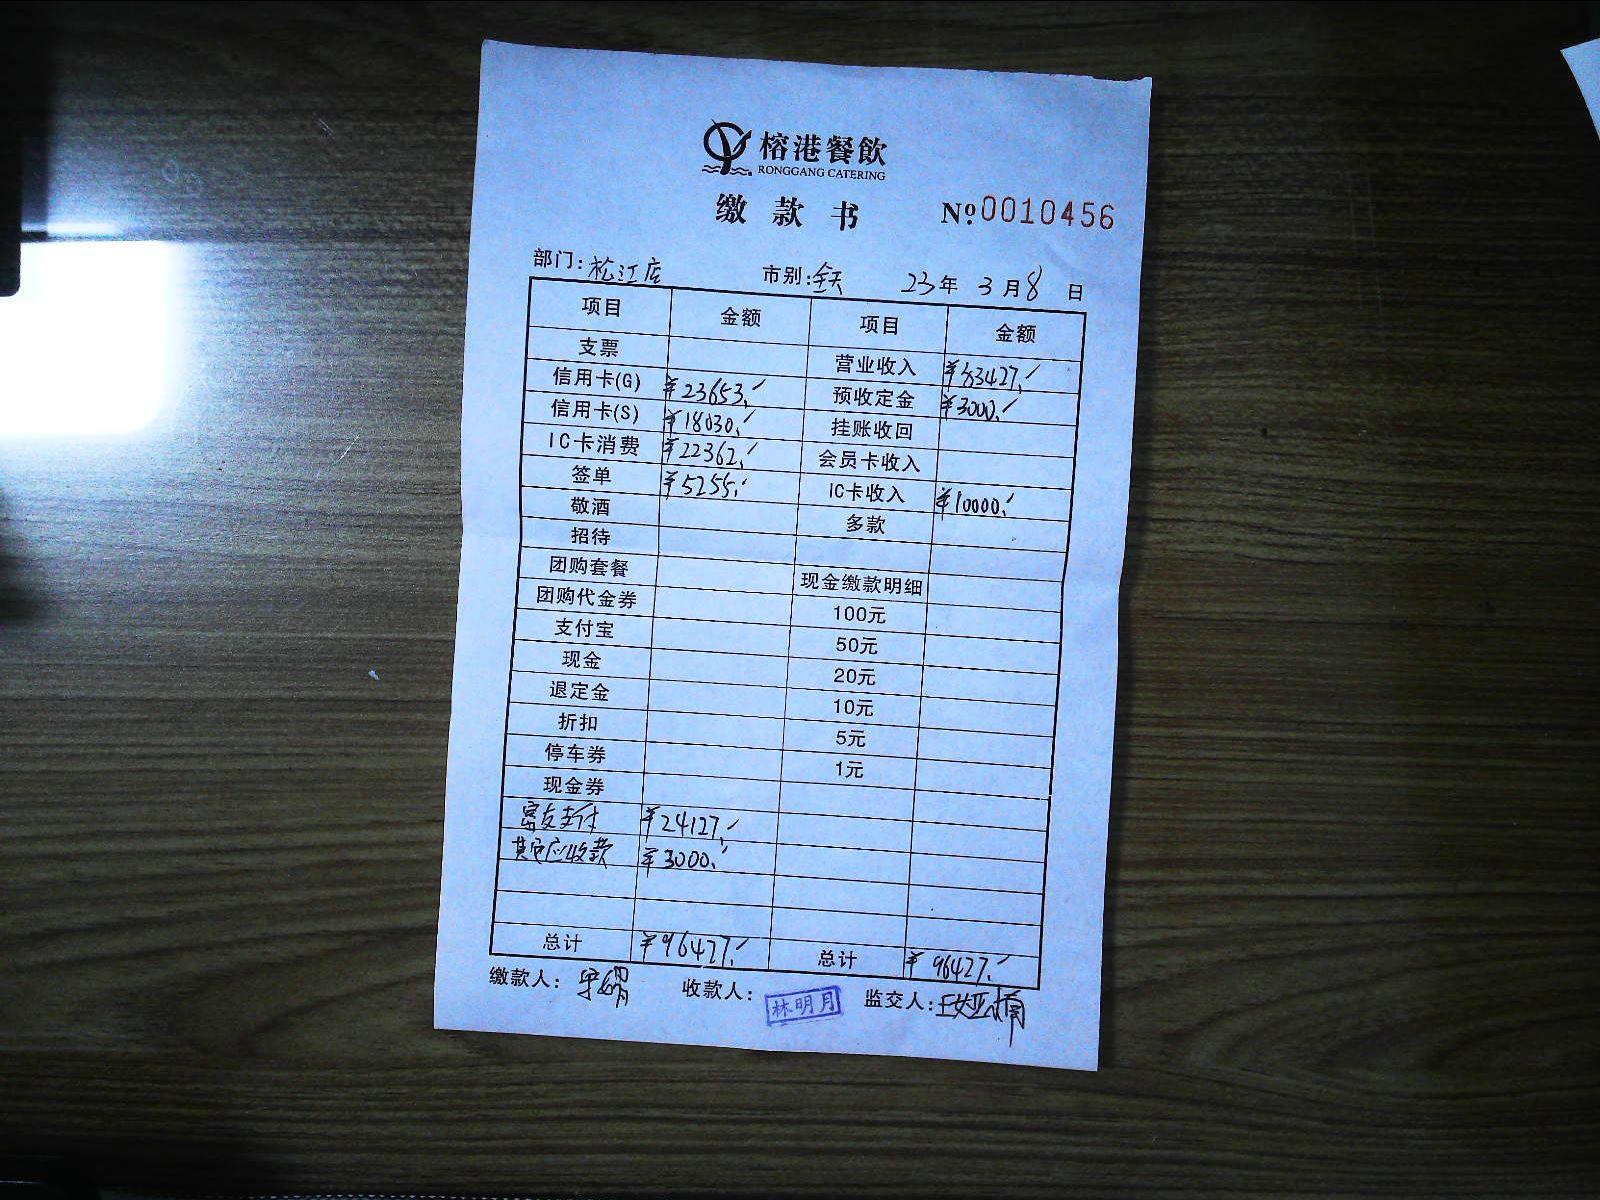 榕港餐飲
RONGGANG CATERING
缴款书 №0010456
部门:松江店 市别:全天 23年3月8日
项目 金额 项目 金额
支票 营业收入 ¥83427.
信用卡(G) ¥23653. 预收定金 ¥3000.
信用卡(S) ¥18030. 挂账收回
IC卡消费 ¥22362. 会员卡收入
签单 ¥5255. IC卡收入 ¥10000.
敬酒 多款
招待
团购套餐 现金缴款明细
团购代金券 100元
支付宝 50元
现金 20元
退定金 10元
折扣 5元
停车券 1元
现金券
富友支付 ¥24127.
其它应收款 ¥3000.
总计 ¥96427. 总计 ¥96427.
缴款人: 收款人: 林明月 监交人: